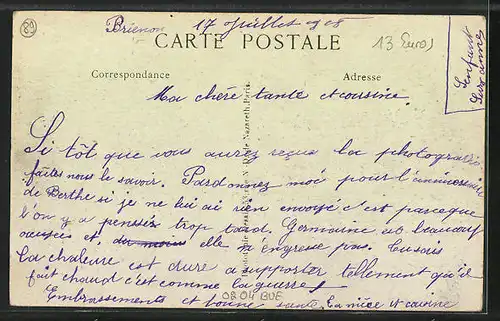 89
Brienon 17 Juillet 1918
CARTE POSTALE
13 Euros
Correspondance
Adresse
Ma chère tante et cousine
Si tôt que vous aurez reçue la photographie
faites nous le savoir. Pardonnez moi pour l'anniversaire
de Berthe si je ne lui ai rien envoyé c'est parceque
l'on y a pensez trop tard. Germaine a beaucoup
et, du moins elle n'engresse pas.
La chaleure est dure a supporter tellement qu'il
fait chaud c'est comme la guerre!
Embrassements et bonne santé. La nièce et cousine
Lenfant
Suzanne
N. D. de Nazareth, Paris.
0804 BUE